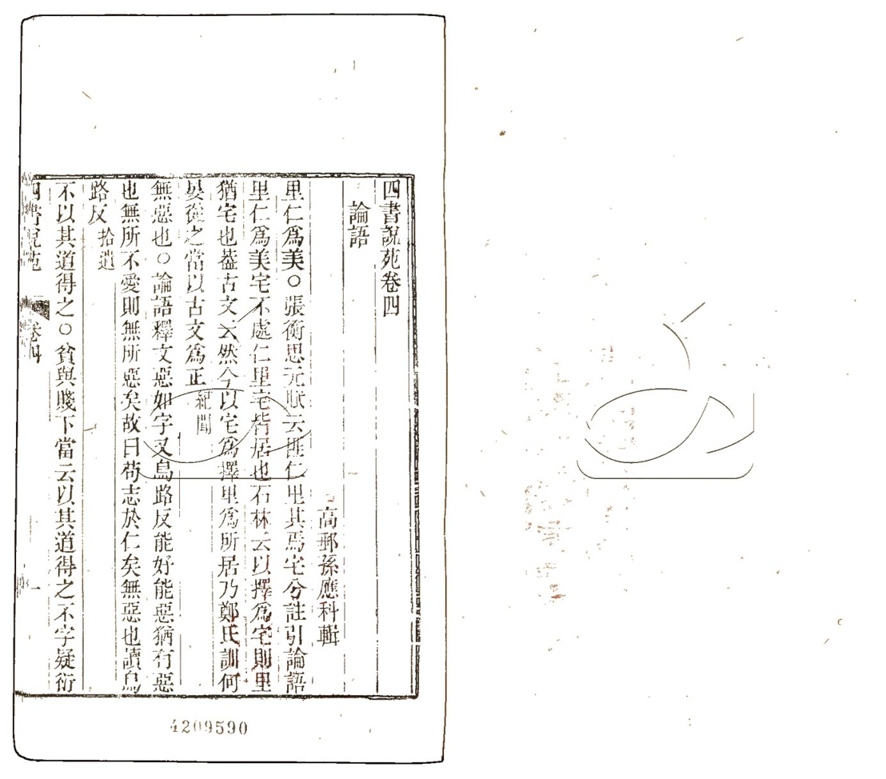 四書說苑卷四
論語
高郵孫應科輯
里仁爲美○張衡思元賦云匪仁里其焉宅兮註引論語
里仁爲美宅不處仁里宅皆居也石林云以擇爲宅則里
猶宅也葢古文云然今以宅爲擇里爲所居乃鄭氏訓何
晏從之當以古文爲正紀聞
無惡也○論語釋文惡如字又烏路反能好能惡猶有惡
也無所不愛則無所惡矣故曰苟志於仁矣無惡也讀烏
路反拾遺
不以其道得之○貧與賤下當云以其道得之不字疑衍
四書說苑 卷四 一
4209590